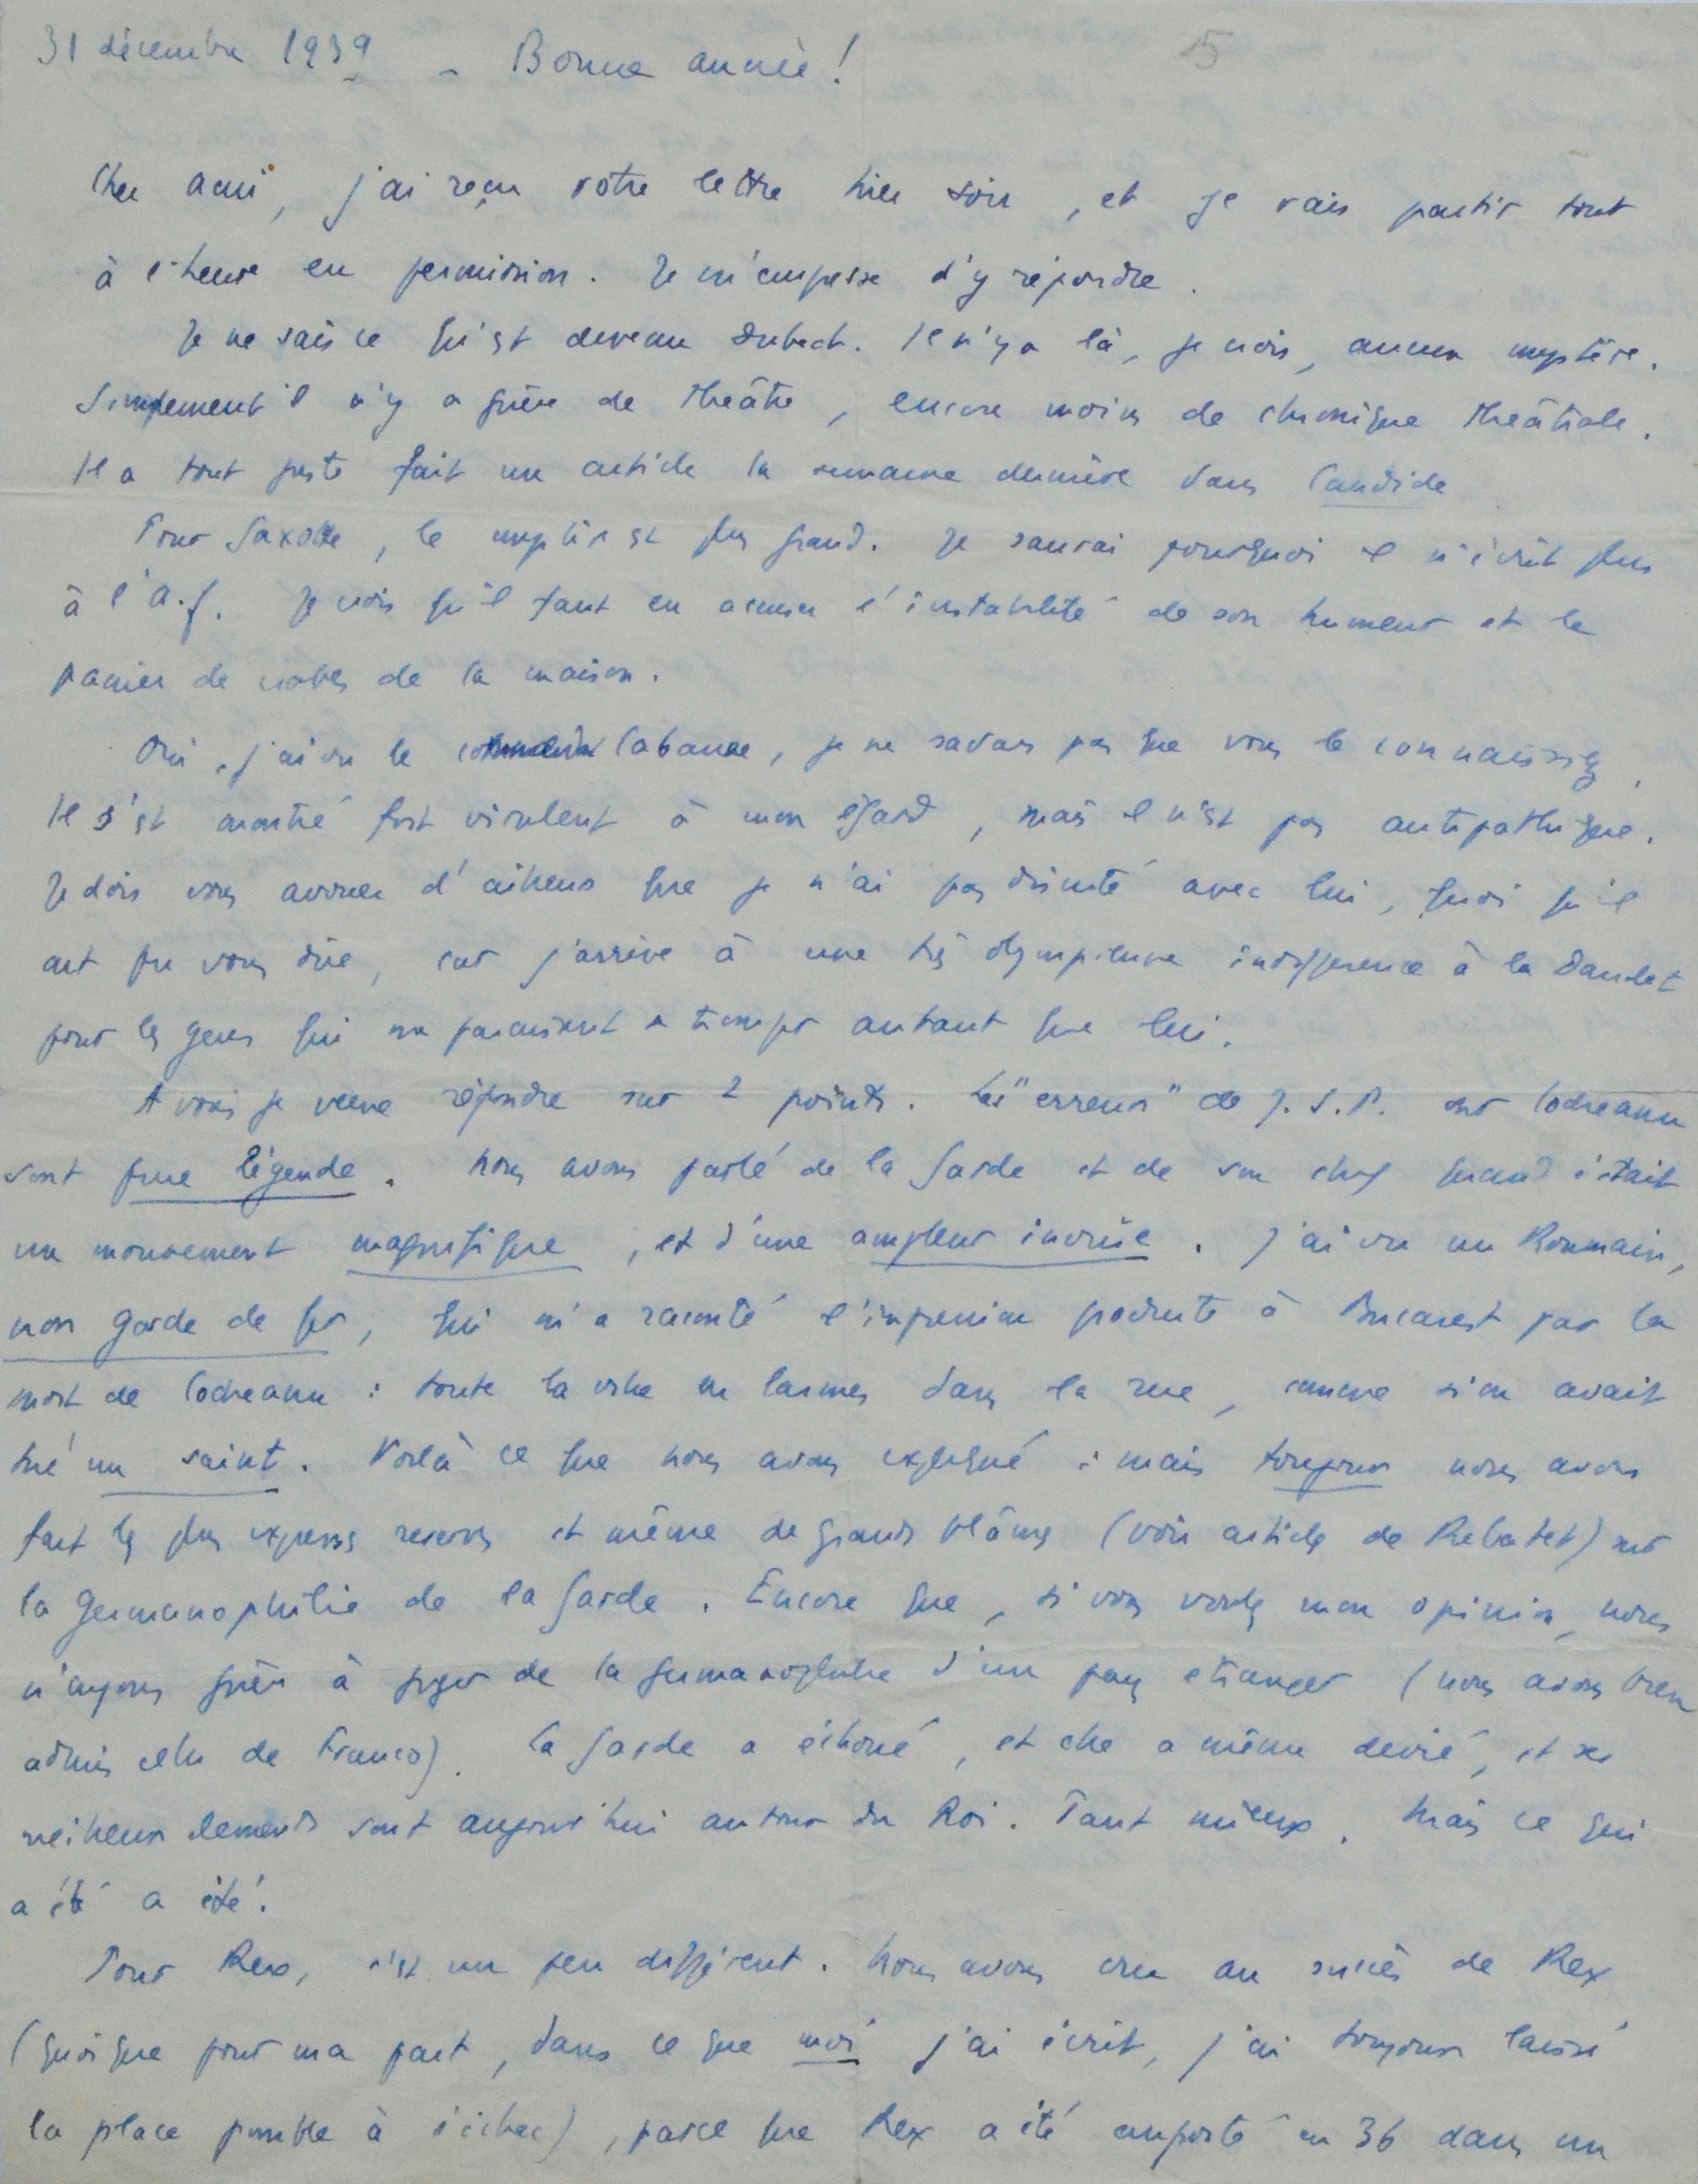 31 décembre 1939 - Bonne année ! 5
Cher ami, j'ai reçu votre lettre hier soir, et je vais partir tout
à l'heure en permission. Je m'empresse d'y répondre.
Je ne sais ce qu'est devenu Dubech. Il n'y a là, je crois, aucun mystère.
Simplement il n'y a guère de théâtre, encore moins de chronique théâtrale.
Il a tout juste fait un article la semaine dernière dans Candide
Pour Gaxotte, le mystère est plus grand. Je saurai pourquoi il n'écrit plus
à l'A.F. Je crois qu'il faut en accuser l'instabilité de son humeur et le
panier de crabes de la maison.
Oui, j'ai vu le Cabanne, je ne savais pas que vous le connaissiez.
Il s'est montré fort virulent à mon égard, mais il n'est pas antipathique.
Je dois vous avouer d'ailleurs que je n'ai pas discuté avec lui, quoi qu'il
ait pu vous dire, car j'arrive à une très olympienne indifférence à la Daudet
pour les gens qui me paraissent se tromper autant que lui.
A vous je veux répondre sur 2 points. Les "erreurs" de J.S.P. sur Codreanu
sont pure légende. Nous avons parlé de la Garde et de son chef quand c'était
un mouvement magnifique, et d'une ampleur inouïe. J'ai vu un Roumain,
non garde de fer, qui m'a raconté l'impression produite à Bucarest par la
mort de Codreanu : toute la ville en larmes dans la rue, comme si on avait
tué un saint. Voilà ce que nous avons expliqué : mais toujours nous avons
fait les plus expresses reserves et même de grands blâmes (voir article de Rebatet) sur
la germanophilie de la Garde. Encore que, si vous voulez mon opinion, nous
n'ayons guère à juger de la germanophilie d'un pays etranger (nous avons bien
admis celle de Franco). La Garde a échoué, et elle a même devié, et ses
meilleurs elements sont aujourd'hui autour du Roi. Tant mieux. Mais ce qui
a été a été.
Pour Rex, c'est un peu différent. Nous avons cru au succès de Rex
(quoique pour ma part, dans ce que moi j'ai écrit, j'ai toujours laissé
la place possible à l'échec), parce que Rex a été emporté en 36 dans un